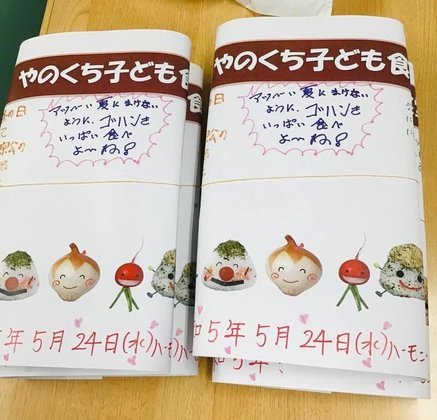 やのくち子ども食
アッつ〜い 夏に まけない
ように、ゴハンを
いっぱい 食べ
よ〜ね!
5年 5月 24日(水)ハーモニ
やのくち子ども食
アッつ〜い 夏に まけない
ように、ゴハンを
いっぱい 食べ
よ〜ね!
和5年 5月 24日(水)ハーモニ